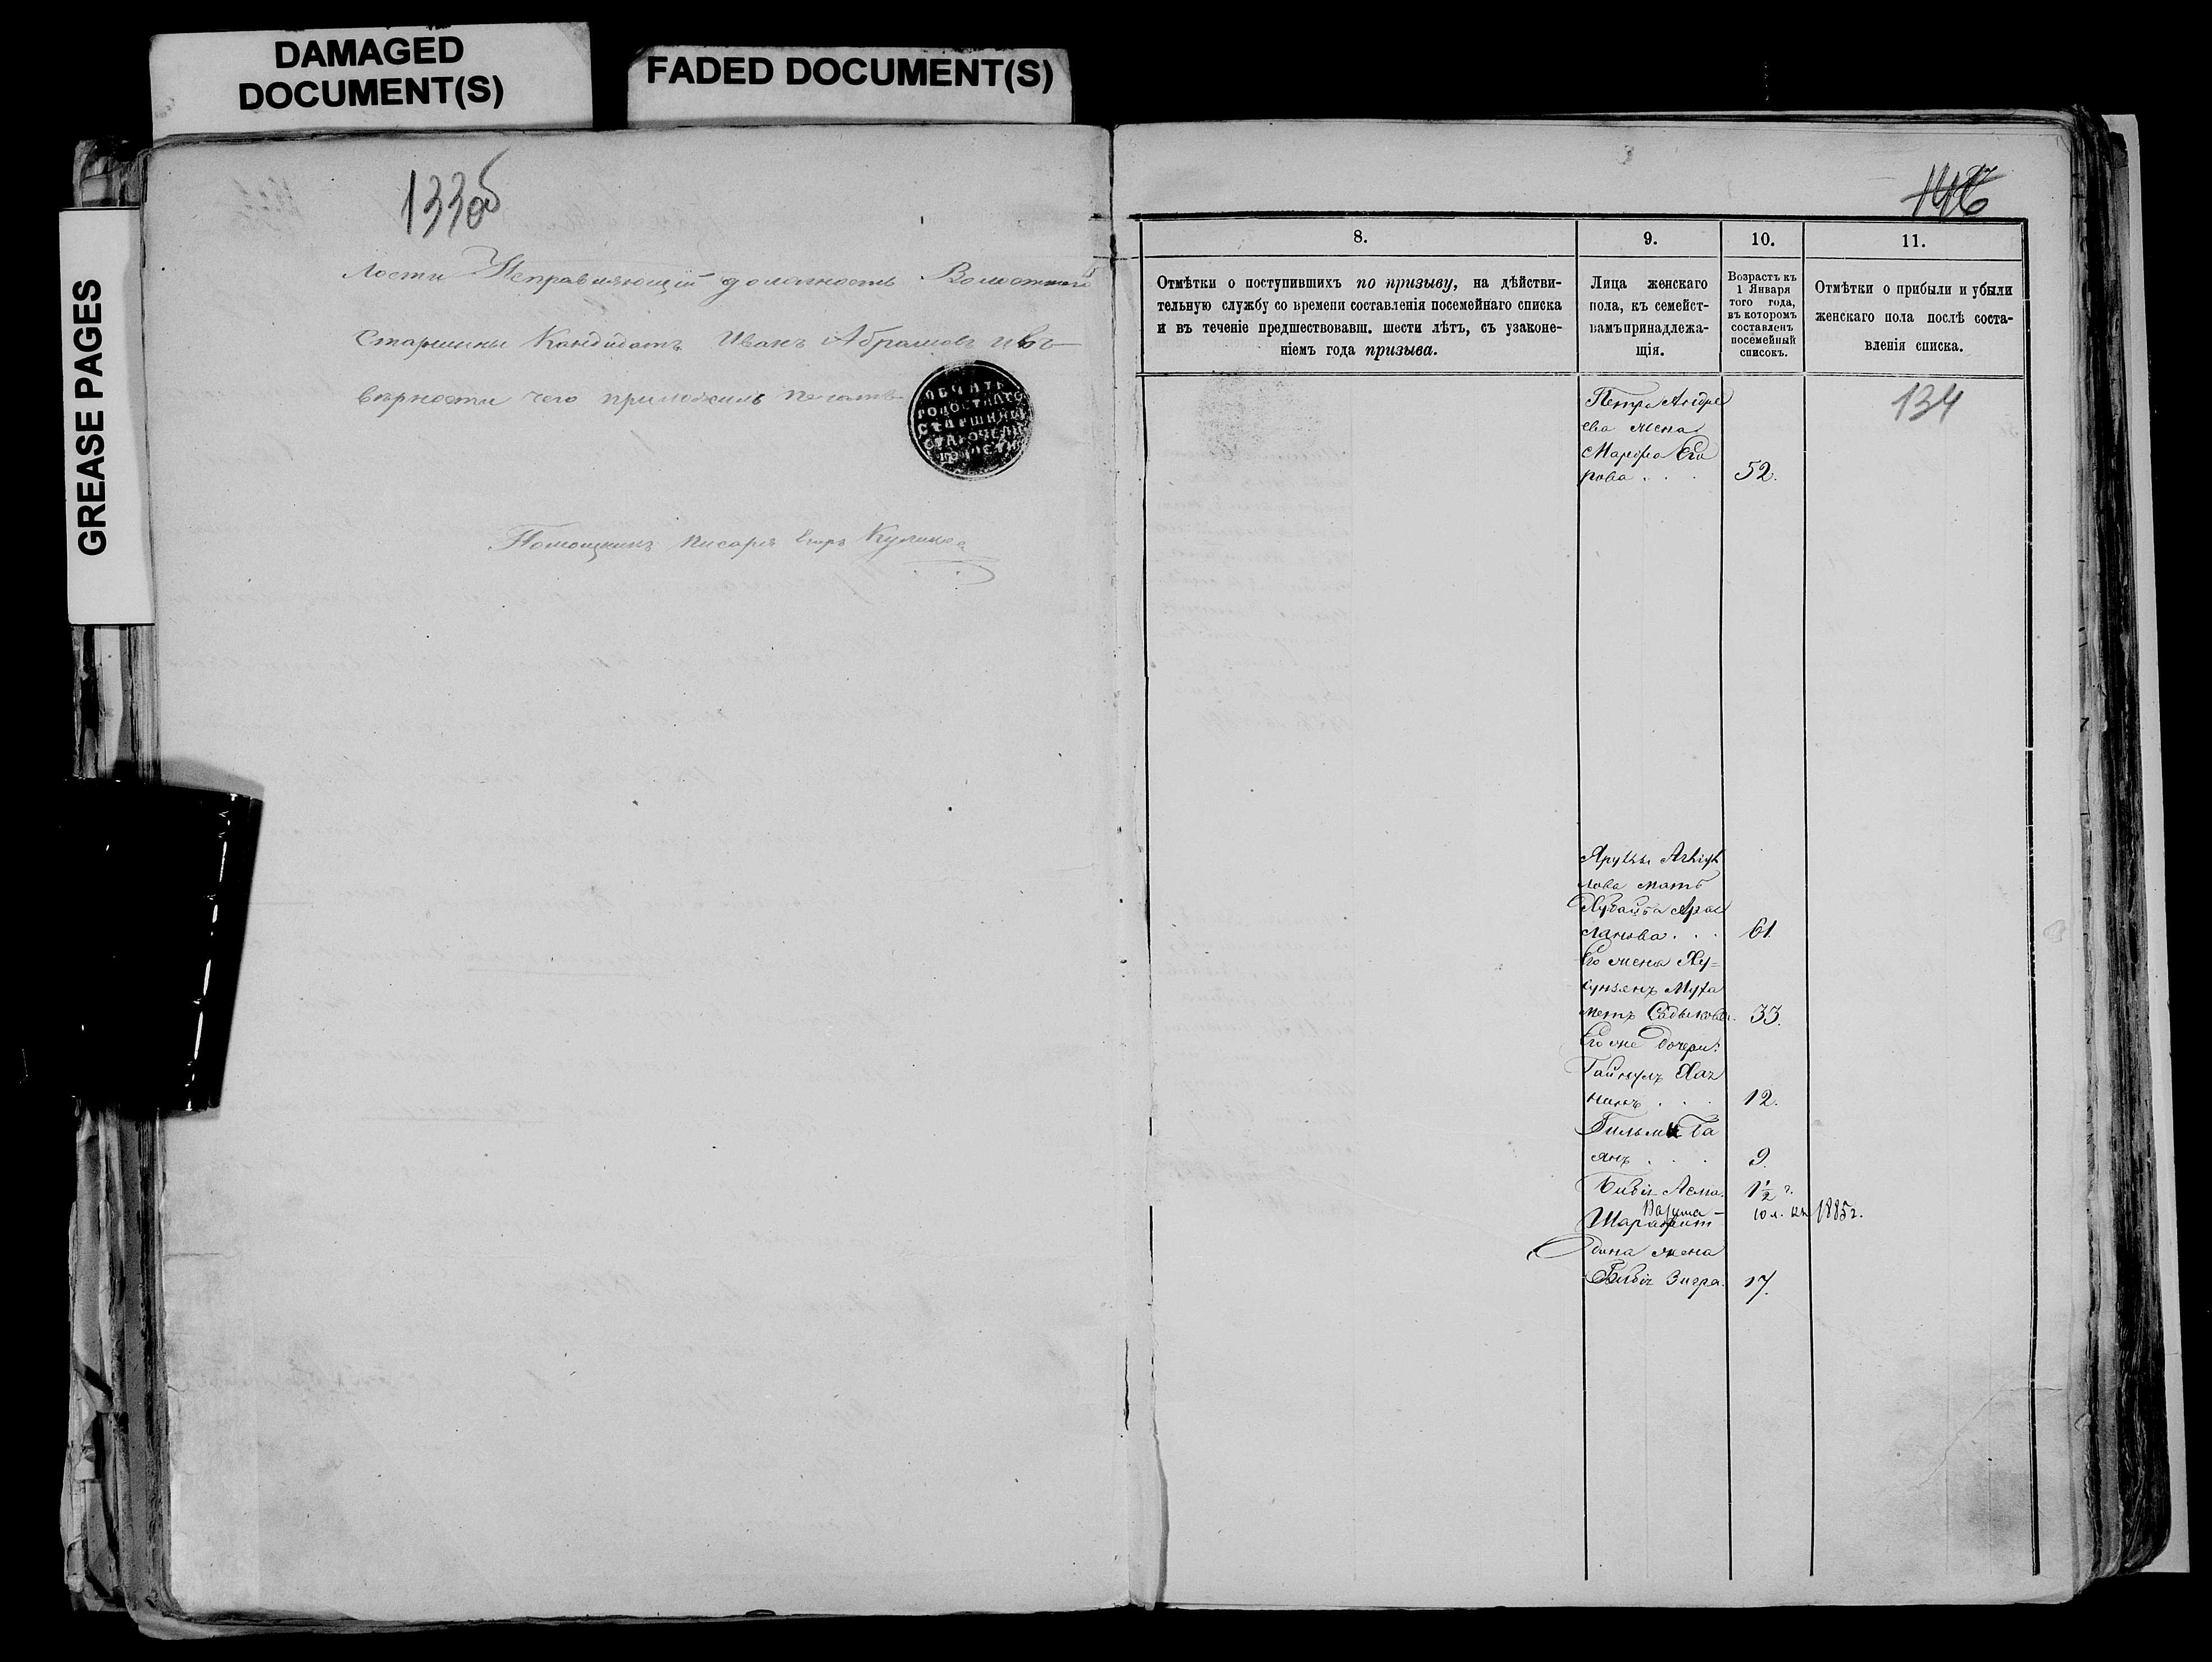 DAMAGED
DOCUMENT(S)
FADED DOCUMENT(S)
GREASE PAGES
133об
лости Исправляющій должность Волостнаго
Старшины Кандидатъ Иванъ Абрамовъ и въ
вѣрности чего приложилъ печать
ПЕЧАТЬ
ВОЛОСТНАГО
СТАРШИНЫ
Помощникъ писаря Егоръ Куликов
146
8.
9.
10.
11.
Отмѣтки о поступившихъ по призыву, на дѣйстви-
тельную службу со времени составленія посемейнаго списка
и въ теченіе предшествовавш. шести лѣтъ, съ узаконе-
ніемъ года призыва.
Лица женскаго
пола, къ семейст-
вамъ принадлежа-
щія.
Возрастъ къ
1 Января
того года,
въ которомъ
составленъ
посемейный
списокъ.
Отмѣтки о прибыли и убыли
женскаго пола послѣ соста-
вленія списка.
134
Петра Андре
ева жена
Марфа Его
рова . . . 52.
лова мать
ланова . . . 61.
Его жена Ху=
Муха
метъ Садыкова. 33.
Его же дочери:
нанъ . . . 12.
янъ . . . 9.
Биби Асма. 1½ г.
10 л. 1885 г.
Шарафут
дина жена
Биби Зигра. 17.